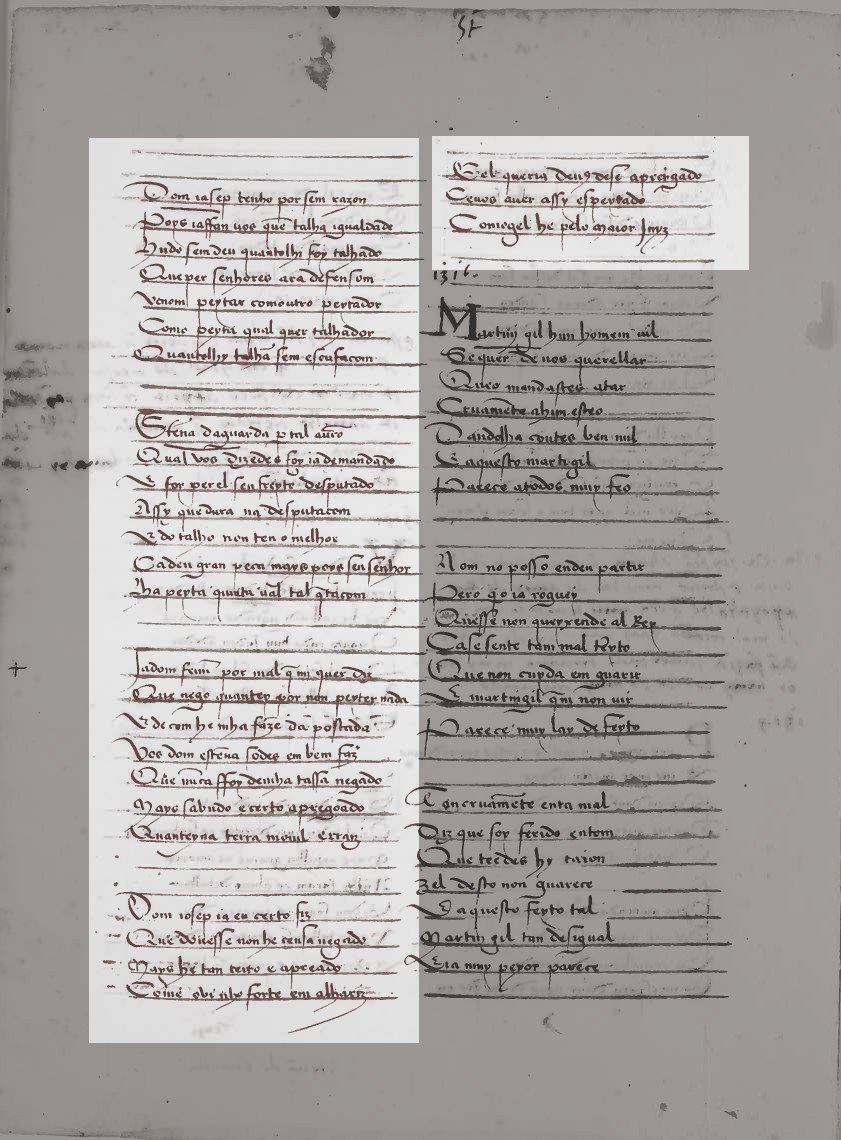 Dom iasep tenho por sem razon
Poys iaffan uos que talha igualdade
Hudo sem deu quantolhi foy talhado
Que per senhores ara defensom
Venom peytar comoutro peytador
Como peyta qual quer talhador
Quantolhy talha sem escusacom
Steuã daguarda p tal
Qual vos dizedes foy ia demandado
E foy per el seu freyto desputado
Assy que dura na desputacom
E do talho non ten o melhor
Ca deu gran peca mays poys seu senhor
lha peyta quita ual tal qtacom
Ia dom por mal q mi quer diz
Que nego quantey por non peyter nada
E de com he mha faze da postada
Vos dom esteuã sodes em bem faz
Que nũca ffoy demha tassa negado
Mays sabudo e certo apregoado
Quanteyna terra moiul e rraiz
Dom iosep ia eu certo fiz
Que douosse non he ceusa negado
Mays he tan certo e apreado
Come obi nho forte em alhariz
El queria deus dese apreçado
E euos auer assy espeytado
Comogel he pelo maior Juyz
1316.
Martin gil hun homem uil
Se quer de uos querellar
Queo mandastes atar
Cruamẽte a hun esteo
Dandolha coutes ben mil
E aquesto martigil
Parece atodos muy feo
Nom no posso enden partir
Pero q o ia roguey
Quesse non queyxende al Rey
Ca se sente tam mal treyto
Que non cuyda em guarir
E martingil q no uir
Parece muy lay de feyto
Ton cruamẽte enta mal
Diz que foy ferido entom
Que teedes hy caion
zel desto non guarece
E aquesto feyto tal
Martin gil tan desigual
E ia muy peyor parece